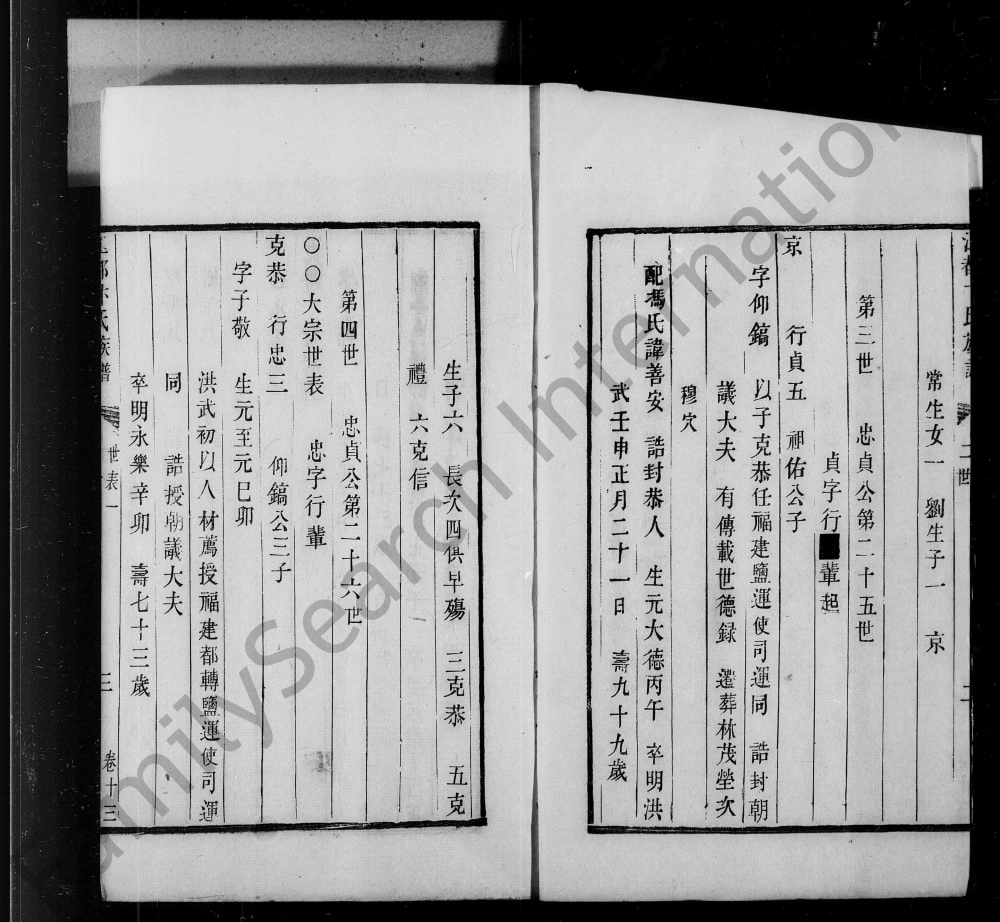 常生女一　劉生子一　京
第三世　忠貞公第二十五世
貞字行　輩起
京　行貞五　祖佑公子
字仰鎬　以子克恭任福建鹽運使司運同　誥封朝
議大夫　有傳載世德録　遷葬林茂塋次
穆穴
配馮氏諱善安　誥封恭人　生元大德丙午　卒明洪
武壬申正月二十一日　壽九十九歲
生子六　長次四俱早殤　三克恭　五克
禮　六克信
第四世　忠貞公第二十六世
〇〇大宗世表　忠字行輩
克恭　行忠三　仰鎬公三子
字子敬　生元至元己卯
洪武初以人材薦授福建都轉鹽運使司運
同　誥授朝議大夫
卒明永樂辛卯　壽七十三歲
氏族譜　世表一　三　卷十三
FamilySearch International